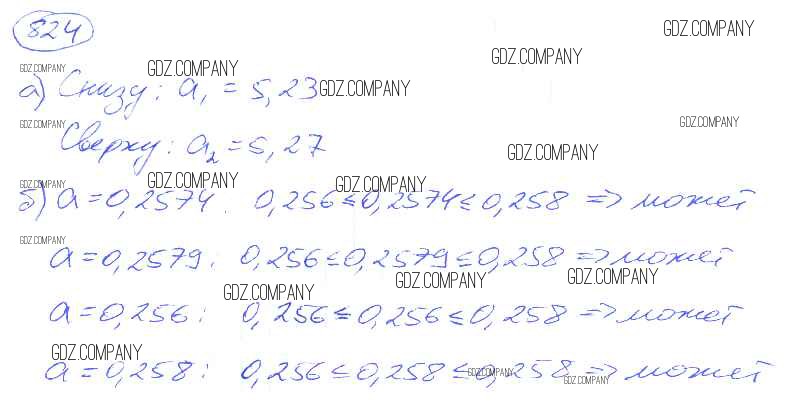 824
GDZ.COMPANY
GDZ.COMPANY
GDZ.COMPANY GDZ.COMPANY
а) Снизу: a₁ = 5,23 GDZ.COMPANY
GDZ.COMPANY GDZ.COMPANY
Сверху: a₂ = 5,27 GDZ.COMPANY
GDZ.COMPANY GDZ.COMPANY GDZ.COMPANY
б) a = 0,2574: 0,256 ≤ 0,2574 ≤ 0,258 => может
GDZ.COMPANY
a = 0,2579: 0,256 ≤ 0,2579 ≤ 0,258 => может
GDZ.COMPANY GDZ.COMPANY GDZ.COMPANY
a = 0,256: 0,256 ≤ 0,256 ≤ 0,258 => может
GDZ.COMPANY
a = 0,258: 0,256 ≤ 0,258 ≤ 0,258 => может
GDZ.COMPANY GDZ.COMPANY